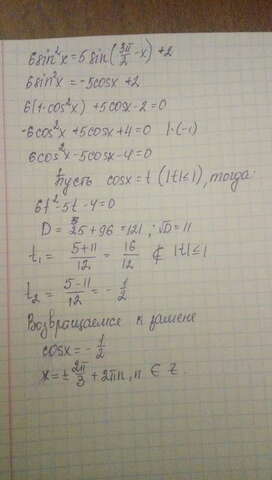 6sin²x=5sin(3π/2-x)+2
6sin²x=-5cosx+2
6(1-cos²x)+5cosx-2=0
-6cos²x+5cosx+4=0 |·(-1)
6cos²x-5cosx-4=0
Пусть cosx=t (|t|≤1), тогда:
6t²-5t-4=0
D=25+96=121; √D=11
t₁=(5+11)/12=16/12 ∉ |t|≤1
t₂=(5-11)/12=-1/2
Возвращаемся к замене
cosx=-1/2
x=±2π/3+2πn, n∈Z.